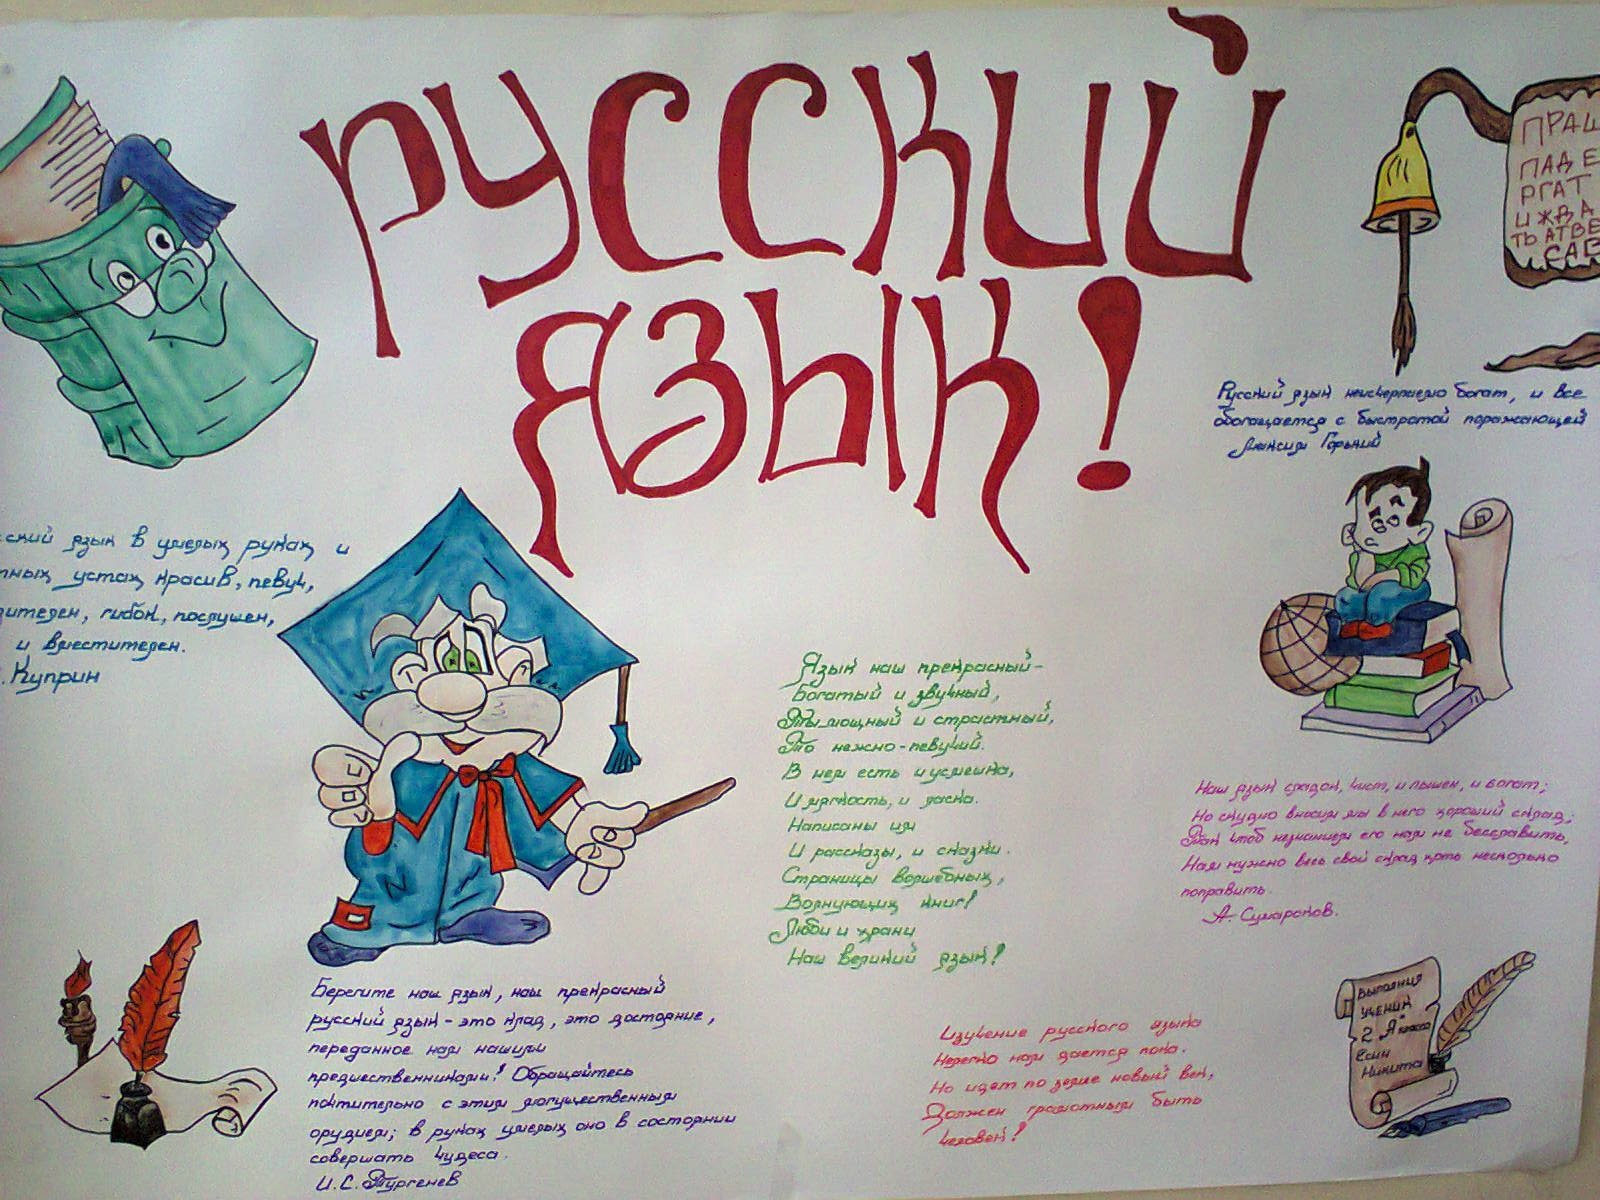 РУССКИЙ
ЯЗЫК!
ПРАШ
ПАДЕ
РГАТ
И ЖДА
ТЬ АТВЕ
САВ
Русский язык неисчерпаемо богат, и все
обогащается с быстротой поражающей
Максим Горький
ский язык в умелых руках и
тных устах красив, певуч,
зителен, гибок, послушен,
и вместителен.
. Куприн
Язык наш прекрасный-
Богатый и звучный,
То мощный и страстный,
То нежно-певучий.
В нем есть и усмешка,
И мягкость, и ласка.
Написаны им
И рассказы, и сказки.
Страницы волшебных,
Волнующих книг!
Люби и храни
Наш великий язык!
Наш язык сладок, чист, и пышен, и богат;
Но скудно вносим мы в него хороший склад;
Так чтоб незнанием его нам не бесславить,
Нам нужно весь свой склад хоть несколько
поправить.
А. Сумароков.
Берегите наш язык, наш прекрасный
русский язык - это клад, это достояние,
переданное нам нашими
предшественниками! Обращайтесь
почтительно с этим могущественным
орудием; в руках умелых оно в состоянии
совершать чудеса.
И.С. Тургенев
Изучение русского языка
Нелегко нам дается пока.
Но идет по земле новый век,
Должен грамотным быть
человек!
Выполнил
ученик
2 "Я" класса
Есин
Никита